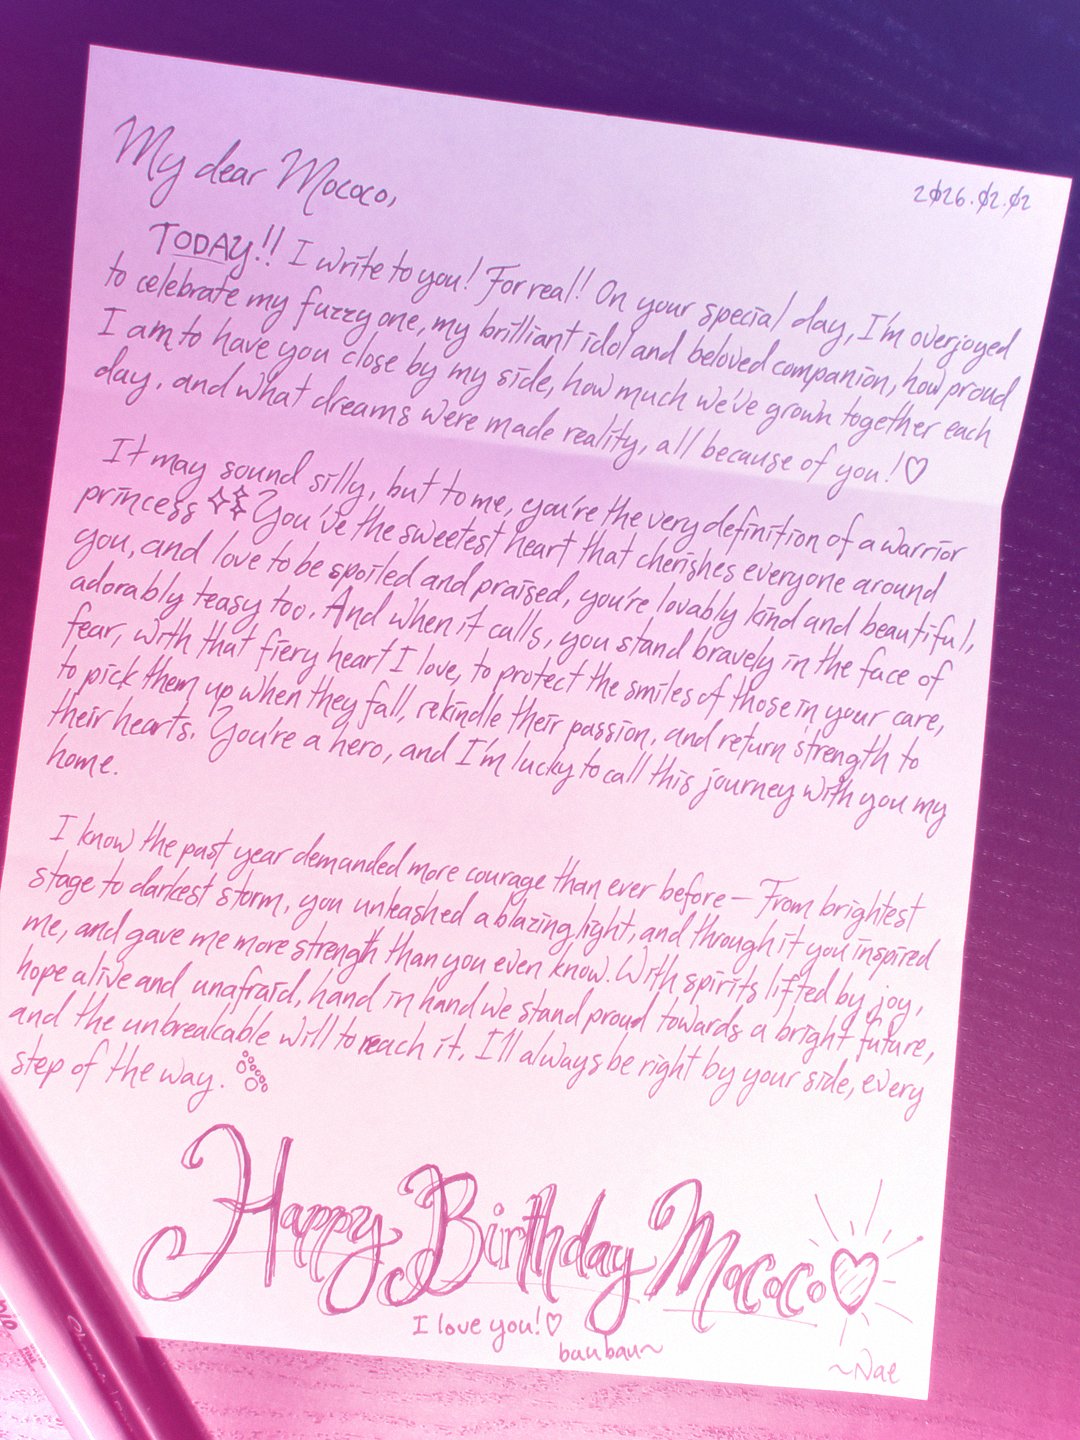 My dear Mococo,
2026.02.02
TODAY!! I write to you! For real! On your special day, I'm overjoyed
to celebrate my fuzzy one, my brilliant idol and beloved companion, how proud
I am to have you close by my side, how much we've grown together each
day, and what dreams were made reality, all because of you! ♡
It may sound silly, but to me, you're the very definition of a warrior
princess You've the sweetest heart that cherishes everyone around
you, and love to be spoiled and praised, you're lovably kind and beautiful,
adorably teasy too. And when it calls, you stand bravely in the face of
fear, with that fiery heart I love, to protect the smiles of those in your care,
to pick them up when they fall, rekindle their passion, and return strength to
their hearts. You're a hero, and I'm lucky to call this journey with you my
home.
I know the past year demanded more courage than ever before — From brightest
stage to darkest storm, you unleashed a blazing light, and through it you inspired
me, and gave me more strength than you even know. With spirits lifted by joy,
hope alive and unafraid, hand in hand we stand proud towards a bright future,
and the unbreakable will to reach it. I'll always be right by your side, every
step of the way.
Happy Birthday Mococo ♡
I love you! ♡
bau bau~
~Nae